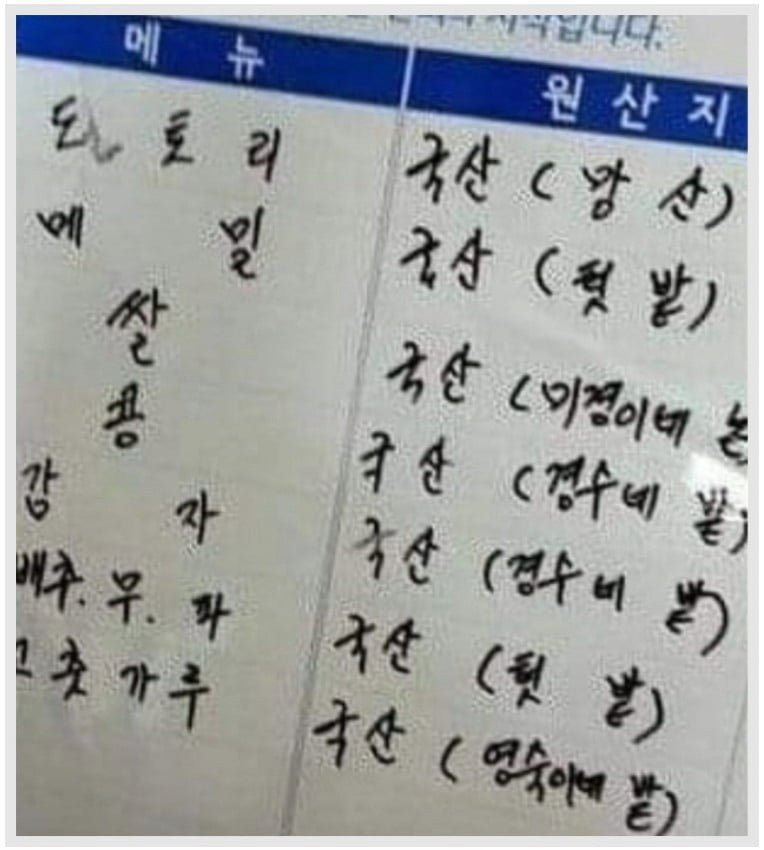 시작입니다.
메뉴 원산지
도토리 국산 (망산)
메밀 국산 (텃밭)
쌀 국산 (미경이네 논)
콩 국산 (경수네 밭)
감자 국산 (경수네 밭)
배추. 무. 파 국산 (텃밭)
고춧가루 국산 (영숙이네 밭)